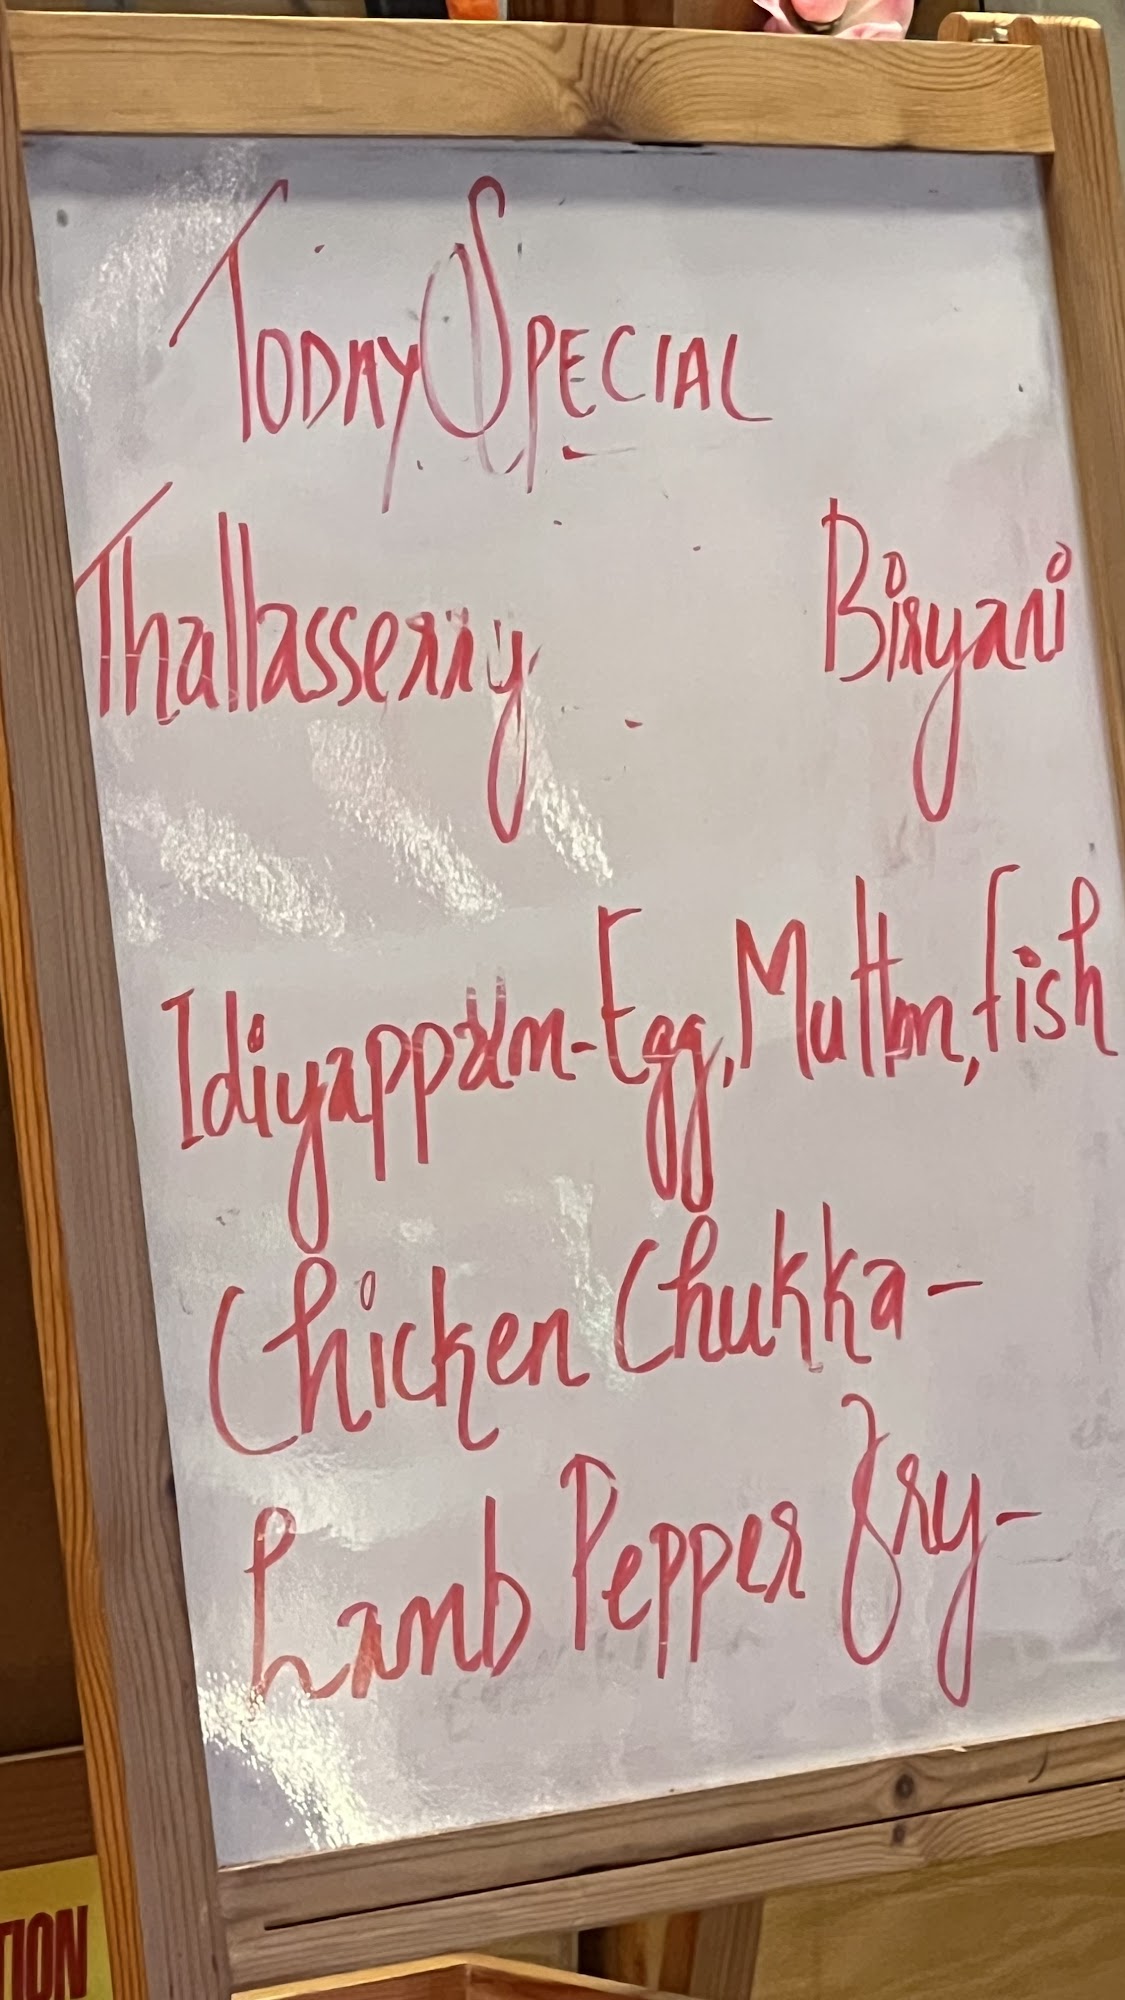 Today Special
Thallasserry Biryani
Idiyappam - Egg, Mutton, Fish
Chicken Chukka -
Lamb Pepper Fry -
TION